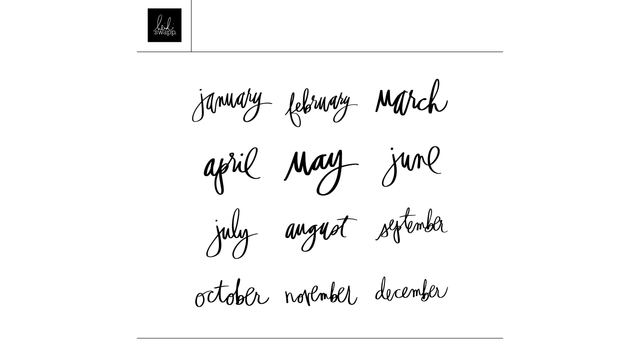 heidi swapp
january february march
april may june
july august september
october november december